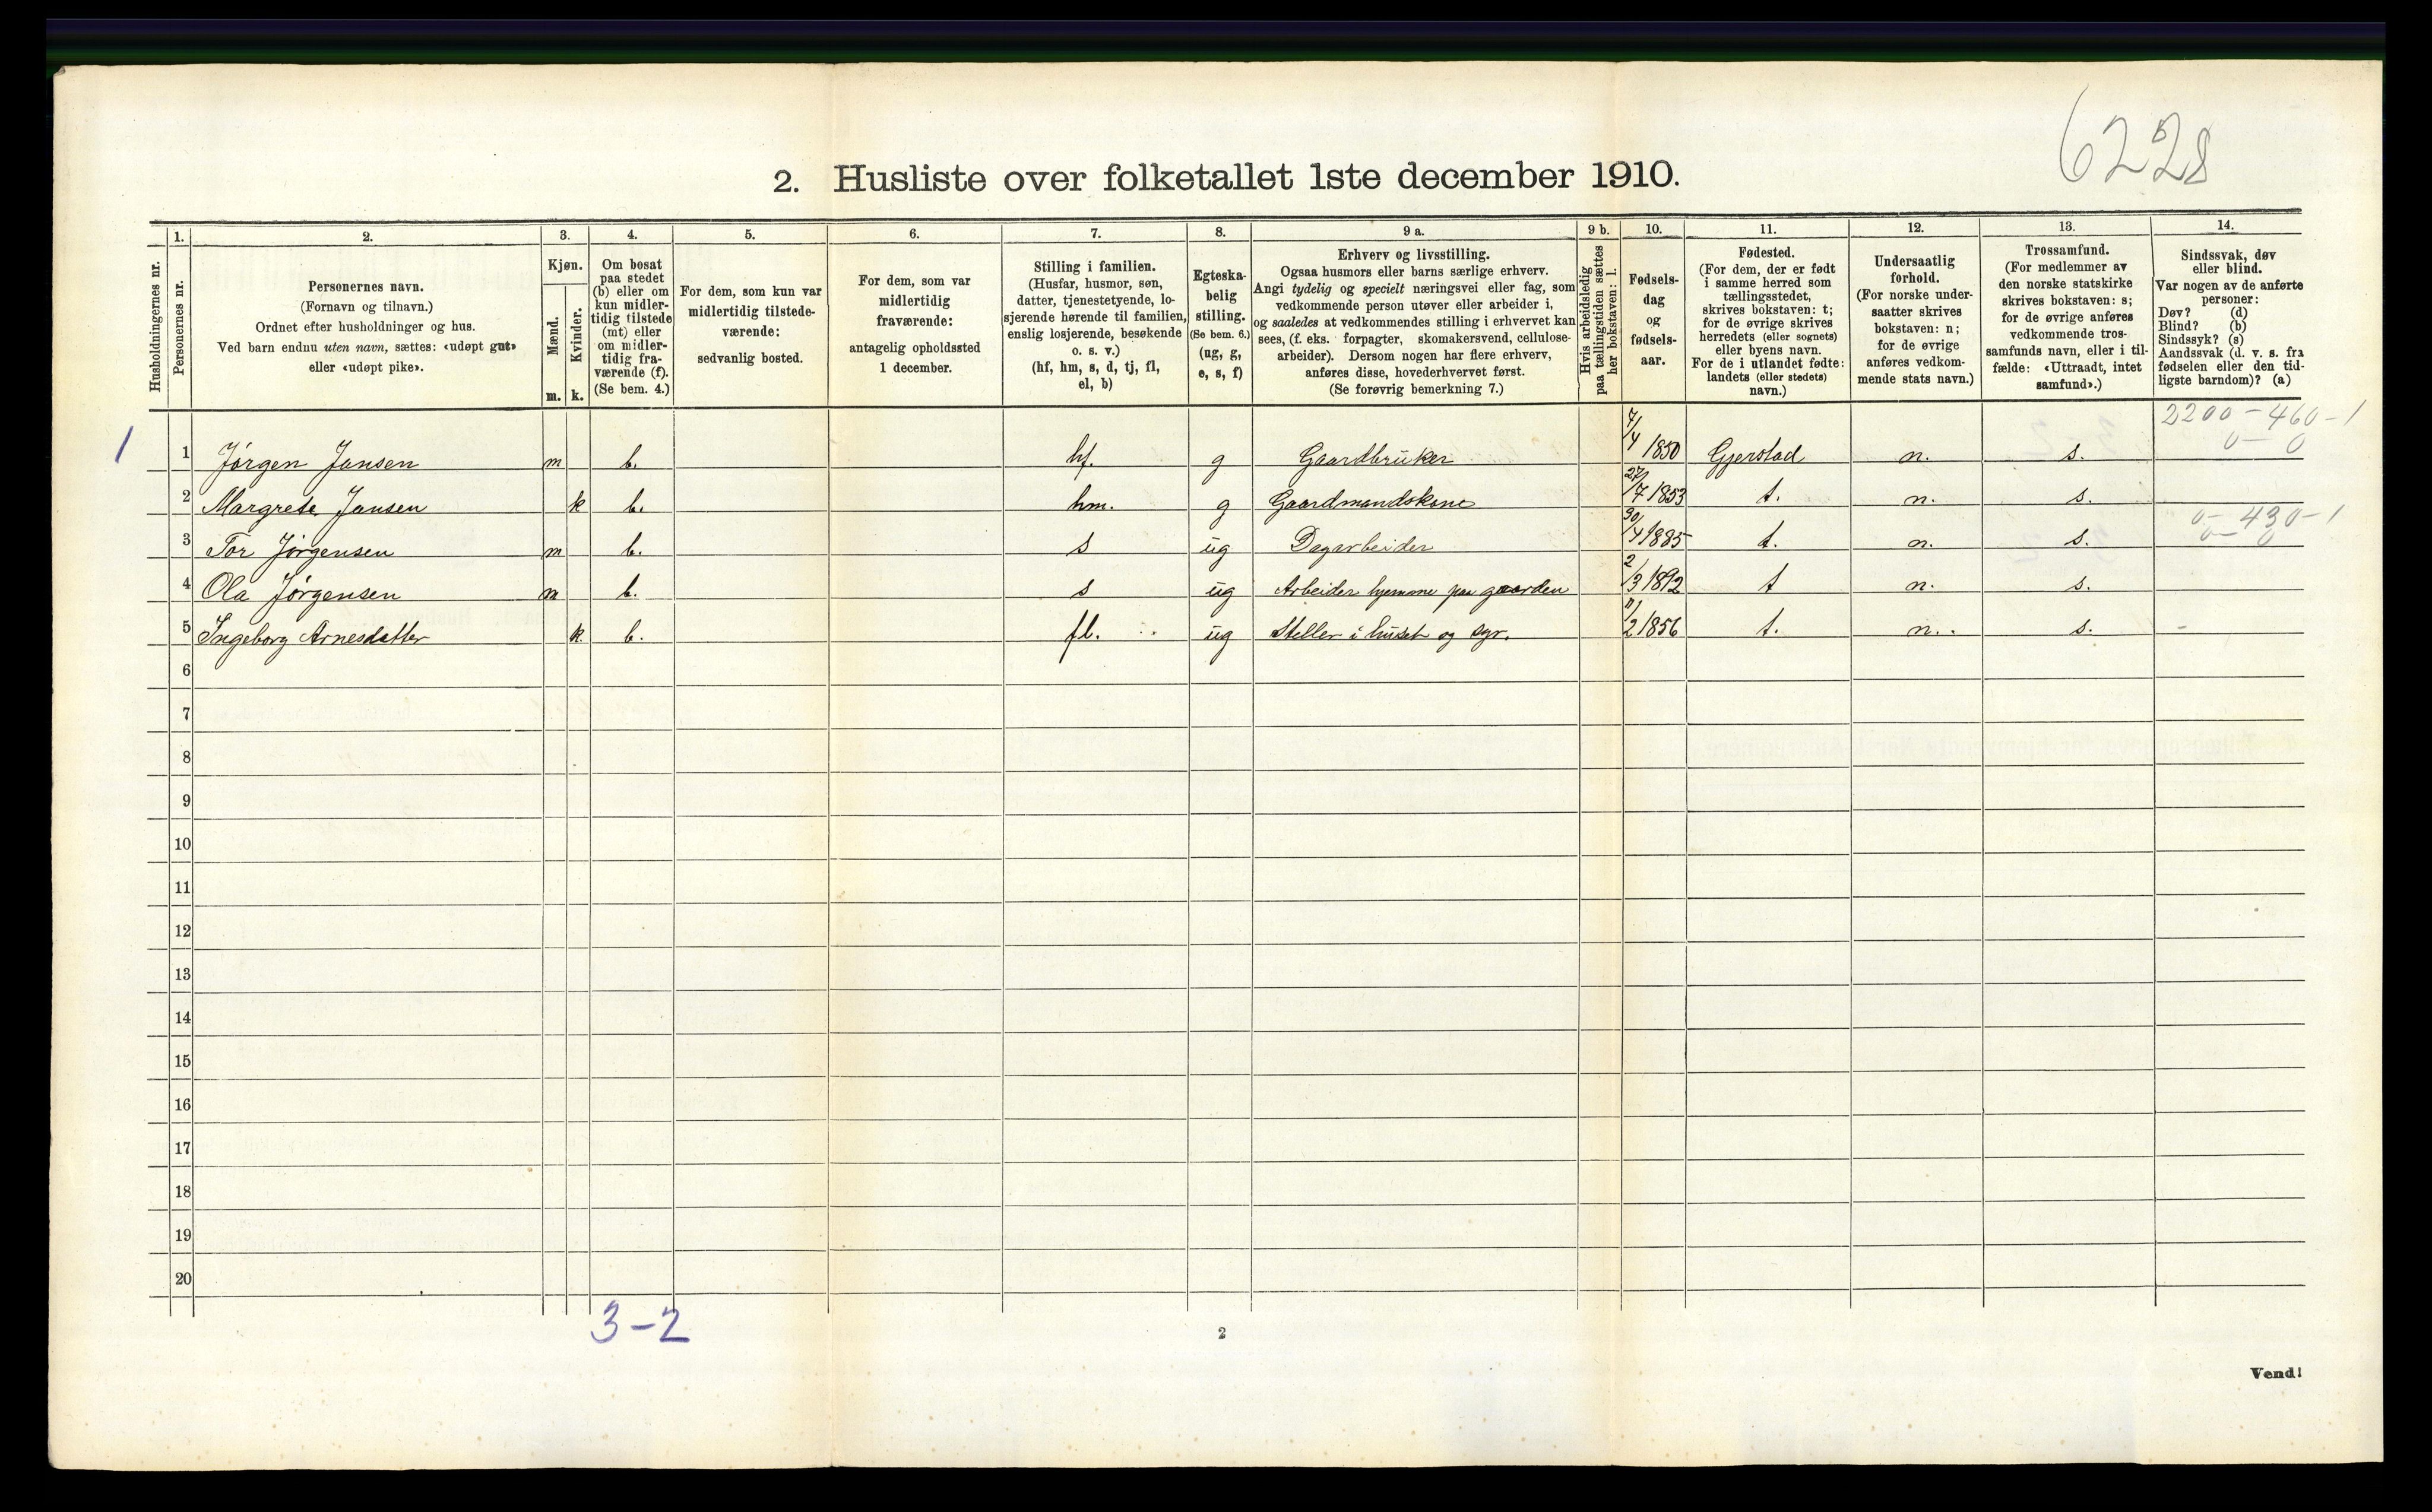 6228
2. Husliste over folketallet 1ste december 1910.
Husholdningernes nr.
1.
Personernes nr.
2.
Personernes navn.
(Fornavn og tilnavn.)
Ordnet efter husholdninger og hus.
Ved barn endnu uten navn, sættes: «udøpt gut»
eller «udøpt pike».
3.
Kjøn.
Mænd.
Kvinder.
m. k.
4.
Om bosat
paa stedet
(b) eller om
kun midler-
tidig tilstede
(mt) eller
om midler-
tidig fra-
værende (f).
(Se bem. 4.)
5.
For dem, som kun var
midlertidig tilstede-
værende:
sedvanlig bosted.
6.
For dem, som var
midlertidig
fraværende:
antagelig opholdssted
1 december.
7.
Stilling i familien.
(Husfar, husmor, søn,
datter, tjenestetyende, lo-
sjerende hørende til familien,
enslig losjerende, besøkende
o. s. v.)
(hf, hm, s, d, tj, fl,
el, b)
8.
Egteska-
belig
stilling.
(Se bem. 6.)
(ug, g,
e, s, f)
9 a.
Erhverv og livsstilling.
Ogsaa husmors eller barns særlige erhverv.
Angi tydelig og specielt næringsvei eller fag, som
vedkommende person utøver eller arbeider i,
og saaledes at vedkommendes stilling i erhvervet kan
sees, (f. eks. forpagter, skomakersvend, cellulose-
arbeider). Dersom nogen har flere erhverv,
anføres disse, hovederhvervet først.
(Se forøvrig bemerkning 7.)
9 b.
Hvis arbeidsledig
paa tællingstiden sættes
her bokstaven: l.
10.
Fødsels-
dag
og
fødsels-
aar.
11.
Fødested.
(For dem, der er født
i samme herred som
tællingsstedet,
skrives bokstaven: t;
for de øvrige skrives
herredets (eller sognets)
eller byens navn.
For de i utlandet fødte:
landets (eller stedets)
navn.)
12.
Undersaatlig
forhold.
(For norske under-
saatter skrives
bokstaven: n;
for de øvrige
anføres vedkom-
mende stats navn.)
13.
Trossamfund.
(For medlemmer av
den norske statskirke
skrives bokstaven: s;
for de øvrige anføres
vedkommende tros-
samfunds navn, eller i til-
fælde: «Uttraadt, intet
samfund».)
14.
Sindssvak, døv
eller blind.
Var nogen av de anførte
personer:
Døv? (d)
Blind? (b)
Sindssyk? (s)
Aandssvak (d. v. s. fra
fødselen eller den tid-
ligste barndom)? (a)
2200-460-1
0-0
1 1 Jørgen Jansen m b. hf. g Gaardbruker 7/4 1850 Gjerstad n. s.
2 Margrete Jansen k b. hm. g Gaardmandskone 27/7 1853 t. n. s.
0-430-1
0-0
3 Tor Jørgensen m b. s ug Dagarbeider 30/4 1885 t. n. s.
4 Ola Jørgensen m b. s ug Arbeider hjemme paa gaarden 2/3 1892 t n. s.
5 Ingeborg Arnesdatter k. b. fl. ug Steller i huset og syr. /2 1856 t. n. s. -
6
7
8
9
10
11
12
13
14
15
16
17
18
19
20
3-2
2
Vend!